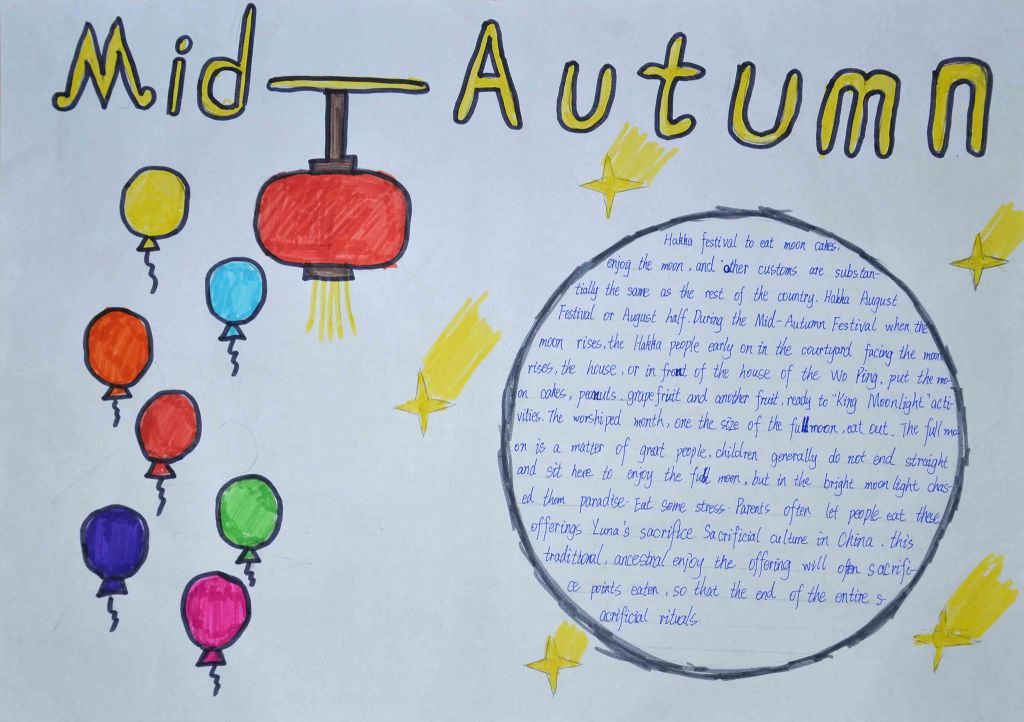 Mid-Autumn
Hakka festival to eat moon cakes,
enjoy the moon, and other customs are substan-
tially the same as the rest of the country. Hakka August
Festival or August half. During the Mid-Autumn Festival when the
moon rises, the Hakka people early on in the courtyard facing the moon
rises, the house, or in front of the house of the Wo Ping, put the mo-
on cakes, peanuts, grapefruit and another fruit, ready to "King Moonlight" acti-
vities. The worshiped month, one the size of the full moon, eat out. The full mo
on is a matter of great people, children generally do not end straight
and sit here to enjoy the full moon, but in the bright moonlight chas-
ed them paradise. Eat some stress. Parents often let people eat these
offerings Luna's sacrifice. Sacrificial culture in China. this
traditional, ancestral enjoy the offering will often sacrifi-
ce points eaten, so that the end of the entire s-
acrificial rituals.